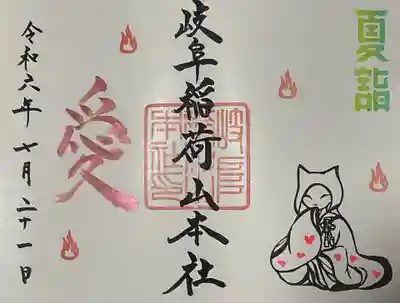 夏詣
岐阜稲荷山本社
愛
令和六年七月二十一日